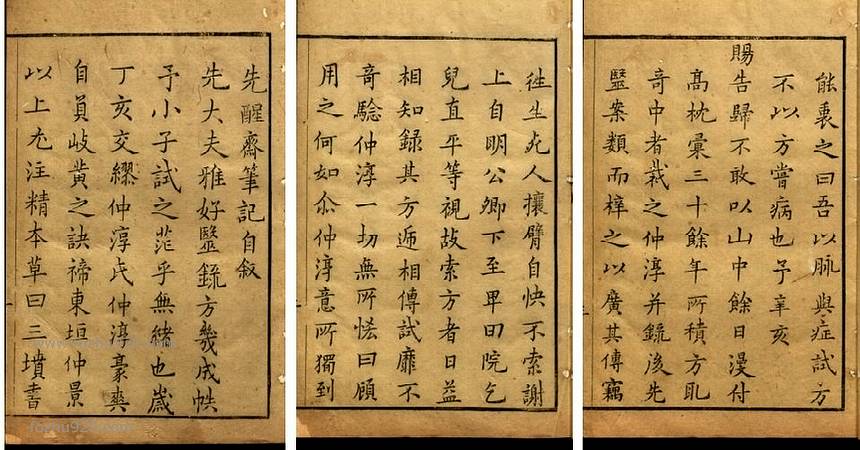 先醒齋筆記自敘
先大夫雅好毉錄方幾成帙
予小子試之茫乎無緒也歲
丁亥交繆仲淳氏仲淳豪爽
自負岐黃之訣禘東垣仲景
以上尤注精本草曰三墳書
徃生死人攘臂自快不索謝
上自明公卿下至卑田院乞
兒直平等視故索方者日益
相知錄其方遞相傳試靡不
奇驗仲淳一切無所恡曰顧
用之何如尒仲淳意所獨到
能裏之曰吾以脉與症試方
不以方嘗病也予辛亥
賜告歸不敢以山中餘日漫付
高枕彙三十餘年所積方取
奇中者裁之仲淳并錄後先
毉案類而梓之以廣其傳竊